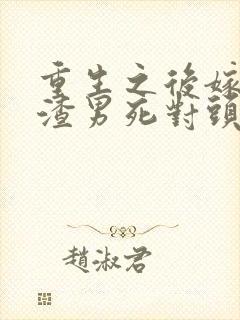 重生之後嫁
渣男死對頭
趙淑君